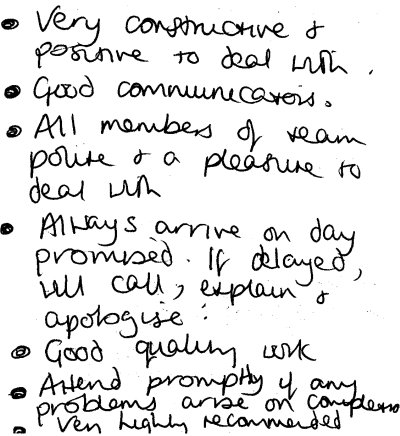 • Very constructive &
positive to deal with.
• Good communicators.
• All members of team
polite & a pleasure to
deal with
• Always arrive on day
promised. If delayed,
will call, explain &
apologise!
• Good quality work
• Attend promptly if any
problems arise on completion
• Very highly recommended